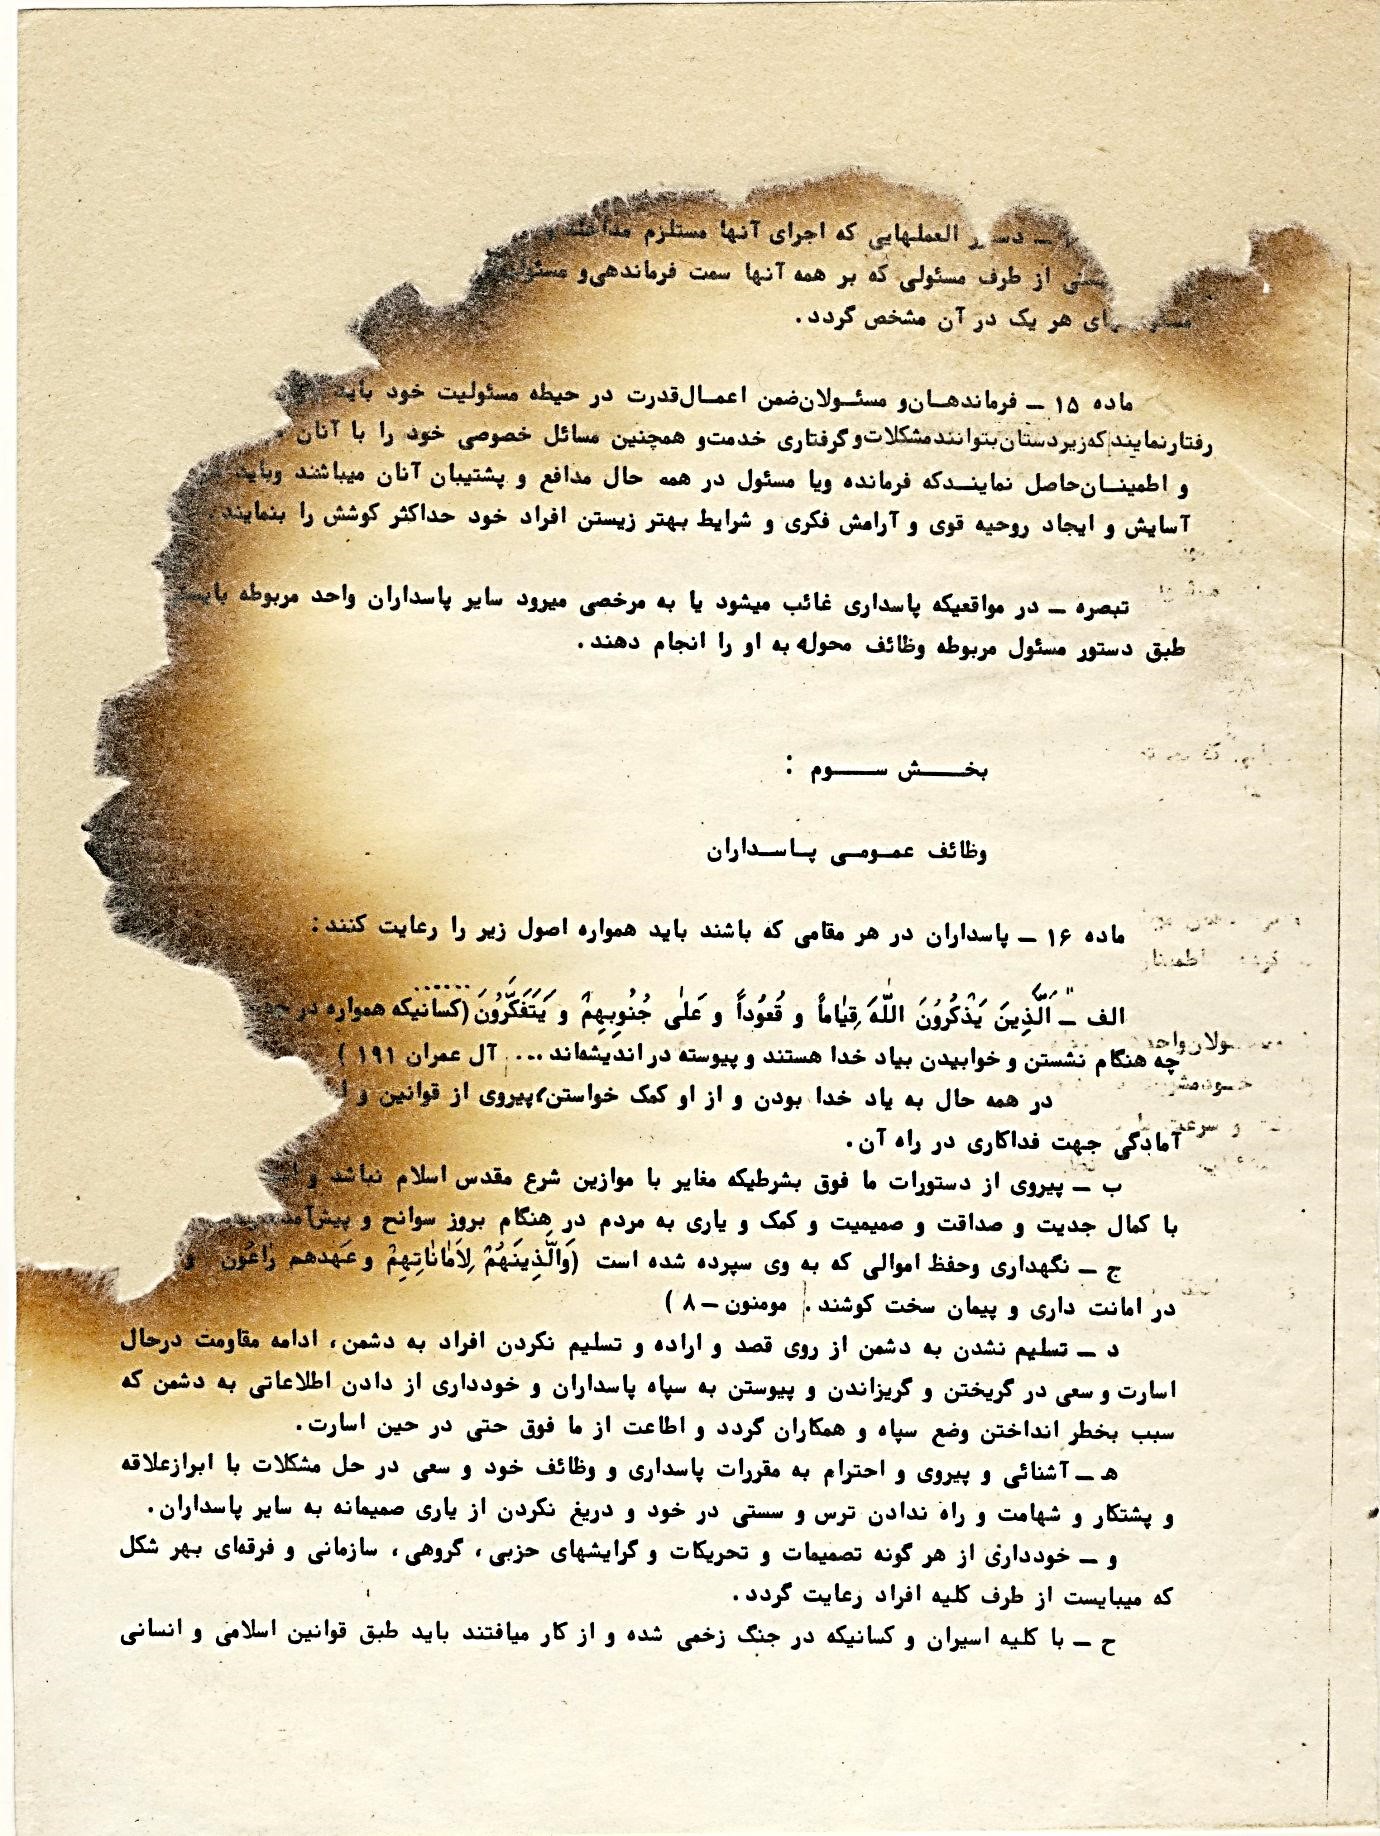 العملهایی که اجرای آنها مستلزم
از طرف مسئولی که بر همه آنها سمت فرماندهی و
هر یک در آن مشخص گردد.
ماده ۱۵ ــ فرماندهـان و مسئـولان ضمن اعمـال قدرت در حیطه مسئولیت خود باید
رفتار نمایند که زیردستان بتوانند مشکلات و گرفتاری خدمت و همچنین مسائل خصوصی خود را با آنان
و اطمینـان حاصل نماینـد که فرمانده ویا مسئول در همه حال مدافع و پشتیبان آنان میباشند وباید
آسایش و ایجاد روحیه قوی و آرامش فکری و شرایط بهتر زیستن افراد خود حداکثر کوشش را بنمایند.
تبصره ــ در مواقعیکه پاسداری غائب میشود یا به مرخصی میرود سایر پاسداران واحد مربوطه
طبق دستور مسئول مربوطه وظائف محوله به او را انجام دهند.
بخـــش ســـوم :
وظائف عمـومـی پـاسـداران
ماده ۱۶ ــ پاسداران در هر مقامی که باشند باید همواره اصول زیر را رعایت کنند:
الف ــ اَلَّذِینَ یَذْکُرُونَ اللّٰهَ قِیٰاماً وَ قُعُوداً وَ عَلٰی جُنُوبِهِمْ وَ یَتَفَکَّرُونَ ...... (کسانیکه همواره در
چه هنگام نشستن و خوابیدن بیاد خدا هستند و پیوسته در اندیشه‌اند ... آل عمران ۱۹۱ )
در همه حال به یاد خدا بودن و از او کمک خواستن، پیروی از قوانین و
آمادگی جهت فداکاری در راه آن.
ب ــ پیروی از دستورات ما فوق بشرطیکه مغایر با موازین شرع مقدس اسلام نباشد و
با کمال جدیت و صداقت و صمیمیت و کمک و یاری به مردم در هنگام بروز سوانح و
ج ــ نگهداری وحفظ اموالی که به وی سپرده شده است (وَالَّذِینَهُمْ لِاَمٰانٰاتِهِمْ وعَهدهم رٰاعُون و
در امانت داری و پیمان سخت کوشند. مومنون ــ ۸ )
د ــ تسلیم نشدن به دشمن از روی قصد و اراده و تسلیم نکردن افراد به دشمن، ادامه مقاومت درحال
اسارت و سعی در گریختن و گریزاندن و پیوستن به سپاه پاسداران و خودداری از دادن اطلاعاتی به دشمن که
سبب بخطر انداختن وضع سپاه و همکاران گردد و اطاعت از ما فوق حتی در حین اسارت.
هـ ــ آشنائی و پیروی و احترام به مقررات پاسداری و وظائف خود و سعی در حل مشکلات با ابرازعلاقه
و پشتکار و شهامت و راه ندادن ترس و سستی در خود و دریغ نکردن از یاری صمیمانه به سایر پاسداران.
و ــ خودداری از هر گونه تصمیمات و تحریکات و گرایشهای حزبی، گروهی، سازمانی و فرقه‌ای بهر شکل
که میبایست از طرف کلیه افراد رعایت گردد.
ح ــ با کلیه اسیران و کسانیکه در جنگ زخمی شده و از کار میافتند باید طبق قوانین اسلامی و انسانی